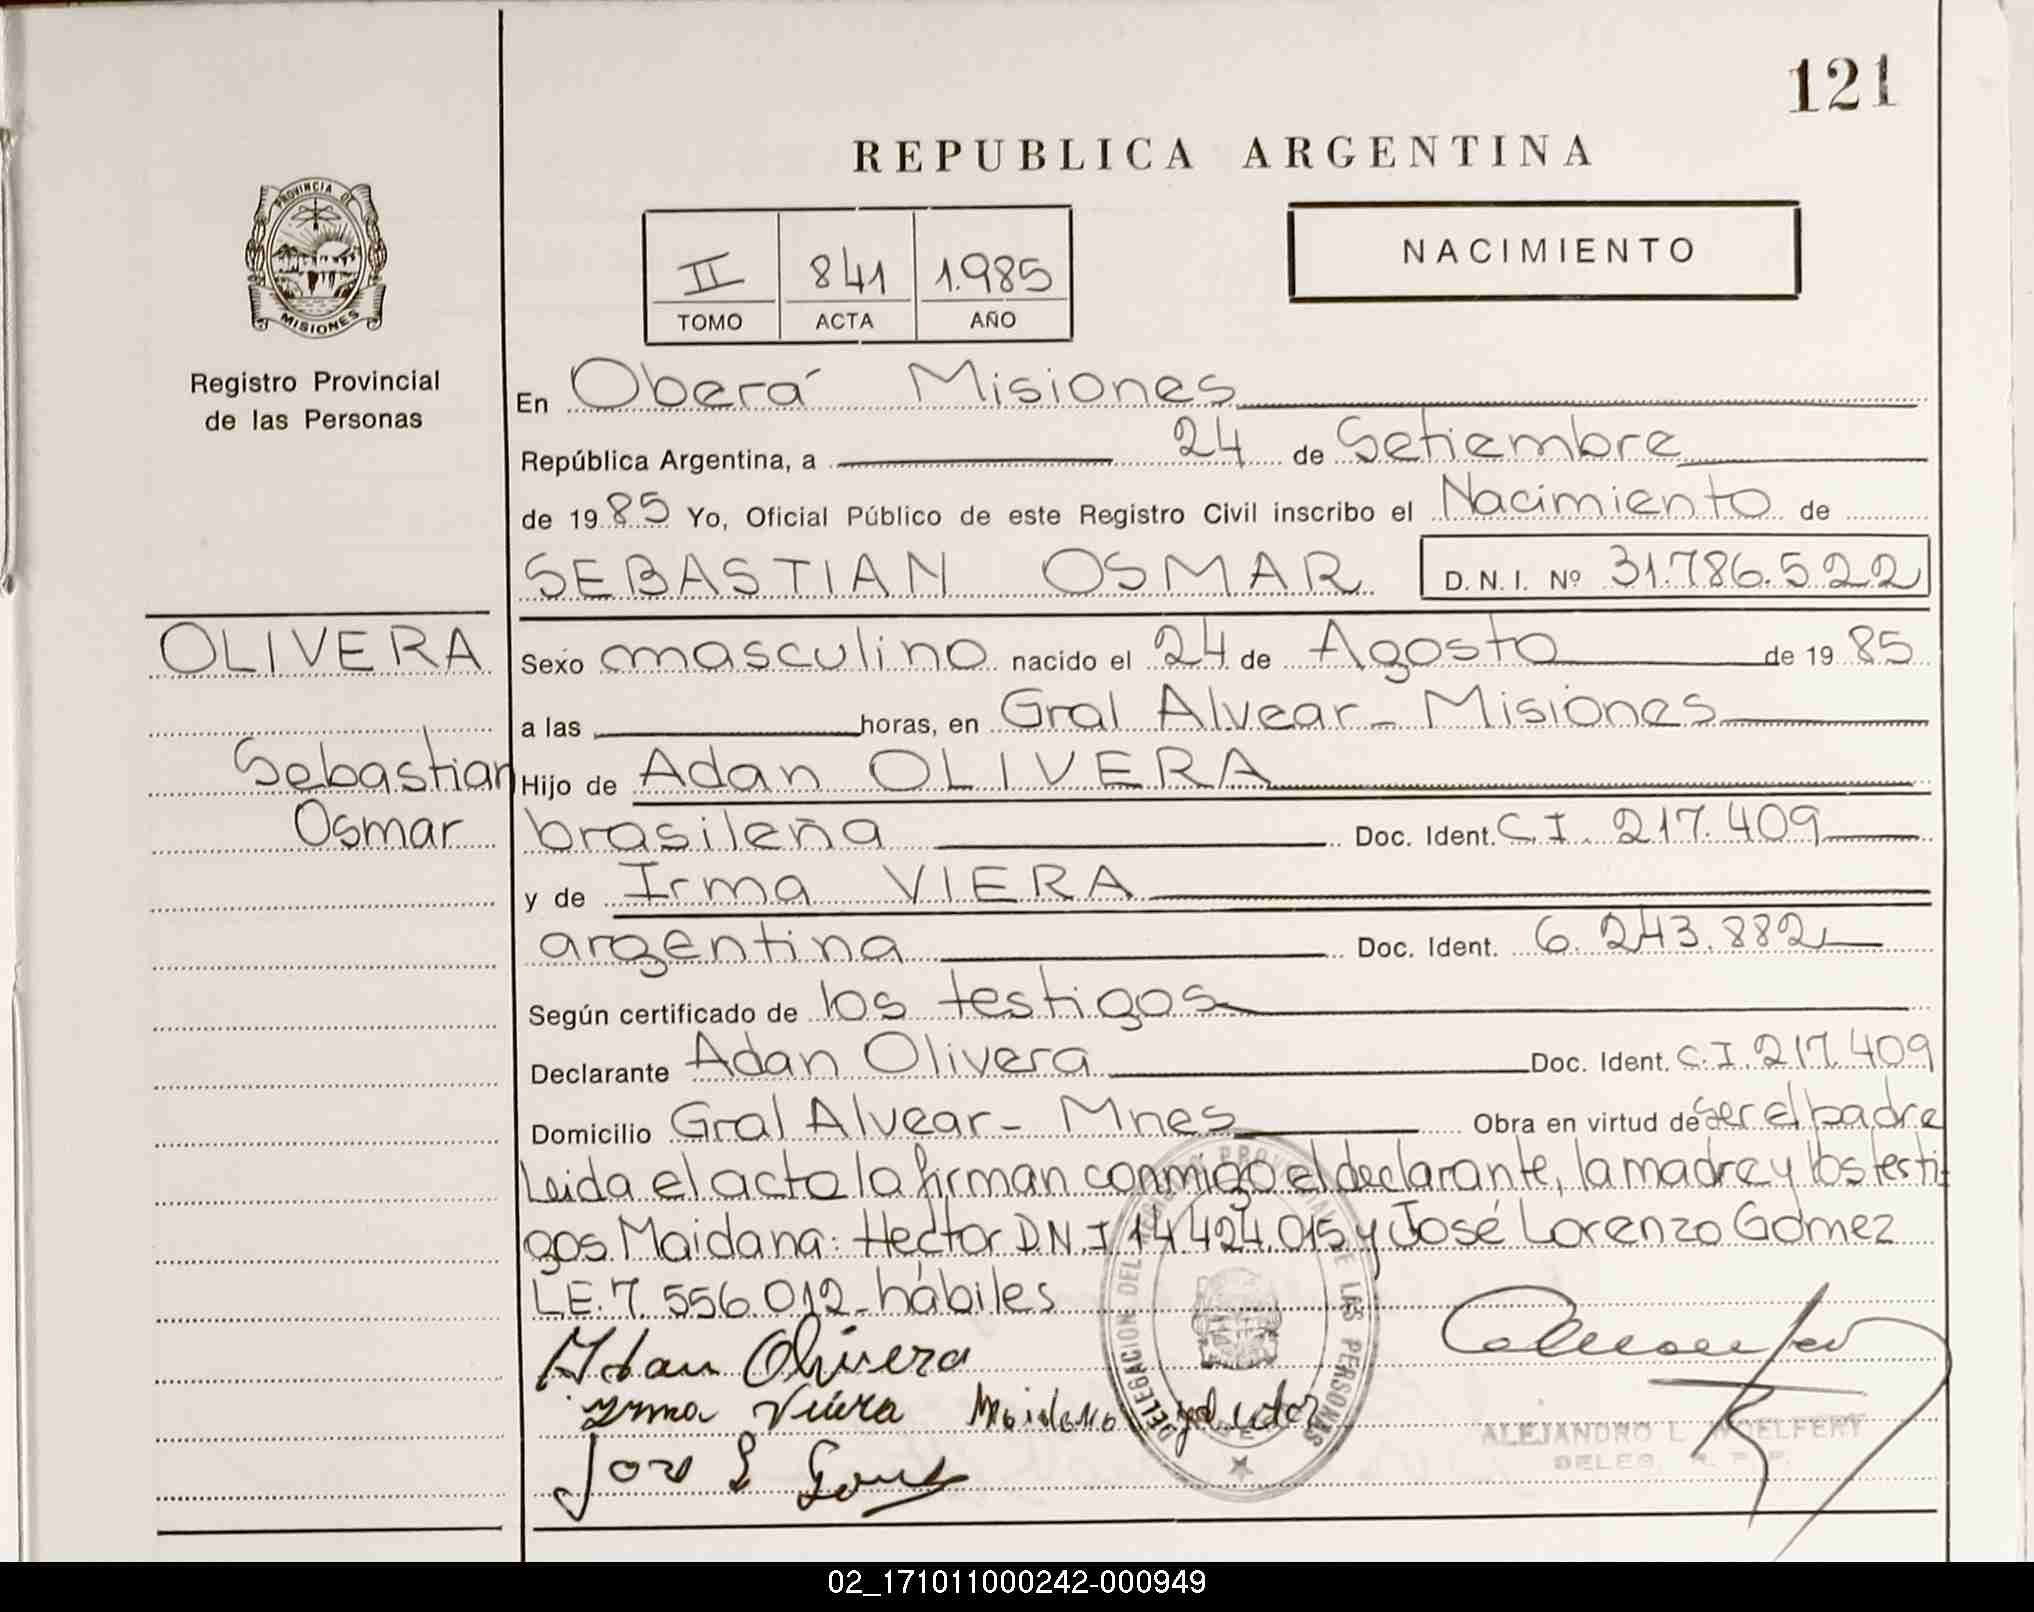 121
REPUBLICA ARGENTINA
PROVINCIA DE
MISIONES
Registro Provincial
de las Personas
II 841 1.985
TOMO ACTA AÑO
NACIMIENTO
En Oberá Misiones
República Argentina, a 24 de Setiembre
de 1985 Yo, Oficial Público de este Registro Civil inscribo el Nacimiento de
SEBASTIAN OSMAR D.N.I. Nº 31.786.522
OLIVERA
Sebastian
Osmar
Sexo masculino nacido el 24 de Agosto de 1985
a las horas, en Gral Alvear - Misiones
Hijo de Adan OLIVERA
brasileña Doc. Ident. C.I. 217.409
y de Irma VIERA
argentina Doc. Ident. 6.243.882
Según certificado de los testigos
Declarante Adan Olivera Doc. Ident. C.I. 217.409
Domicilio Gral Alvear - Mnes Obra en virtud de ser el padre
Leida el acta la firman conmigo el declarante, la madre y los testi
gos Maidana: Hector D.N.I 14.424.015 y José Lorenzo Gomez
L.E. 7.556.012 - hábiles
Adan Olivera
Irma Viera Maidana
Jose L Gomez
DELEGACION DEL REGISTRO PROVINCIAL DE LAS PERSONAS
ALEJANDRO L WOELFERT
DELEG. R. P. P.
02_171011000242-000949